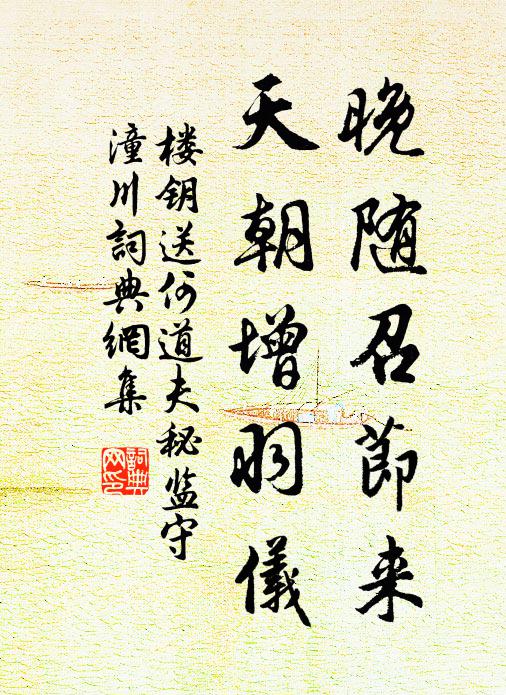 晚随召节来
天朝增羽儀
楼钥送何道夫秘监守
潼川詞典網集
詞典
网印